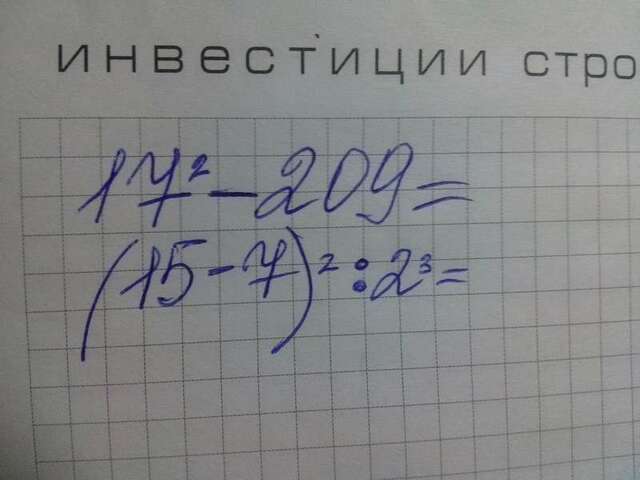 ИНВЕСТИЦИИ СТРО
17² - 209 =
(15 - 7)² : 2³ =